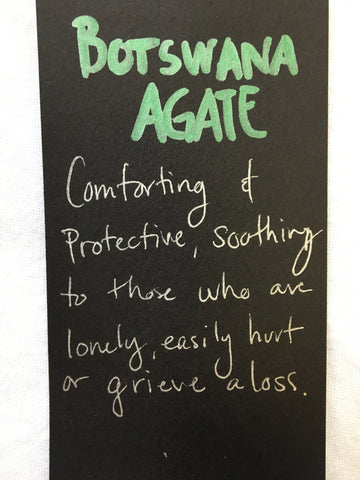 BOTSWANA
AGATE
Comforting &
Protective, soothing
to those who are
lonely, easily hurt
or grieve a loss.